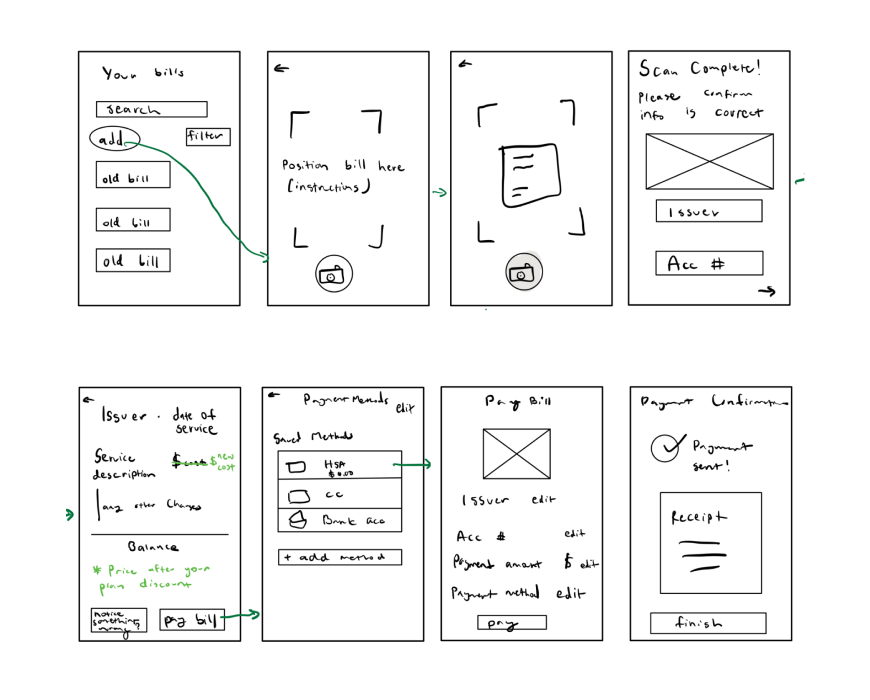 Your bills
search
add
filter
old bill
old bill
old bill
Position bill here
(instructions)
Scan Complete!
Please confirm
info is correct
Issuer
Acc #
Issuer . date of
service
Service
description
$ cost
$ new
cost
any other Charges
Balance
* Price after your
plan discount
notice
something
wrong?
pay bill
Payment Methods
edit
Saved Methods
HSA
$0.00
CC
Bank acc
+ add method
Pay Bill
Issuer edit
Acc # edit
Payment amount $ edit
Payment method edit
pay
Payment Confirmation
Payment
sent!
Receipt
finish